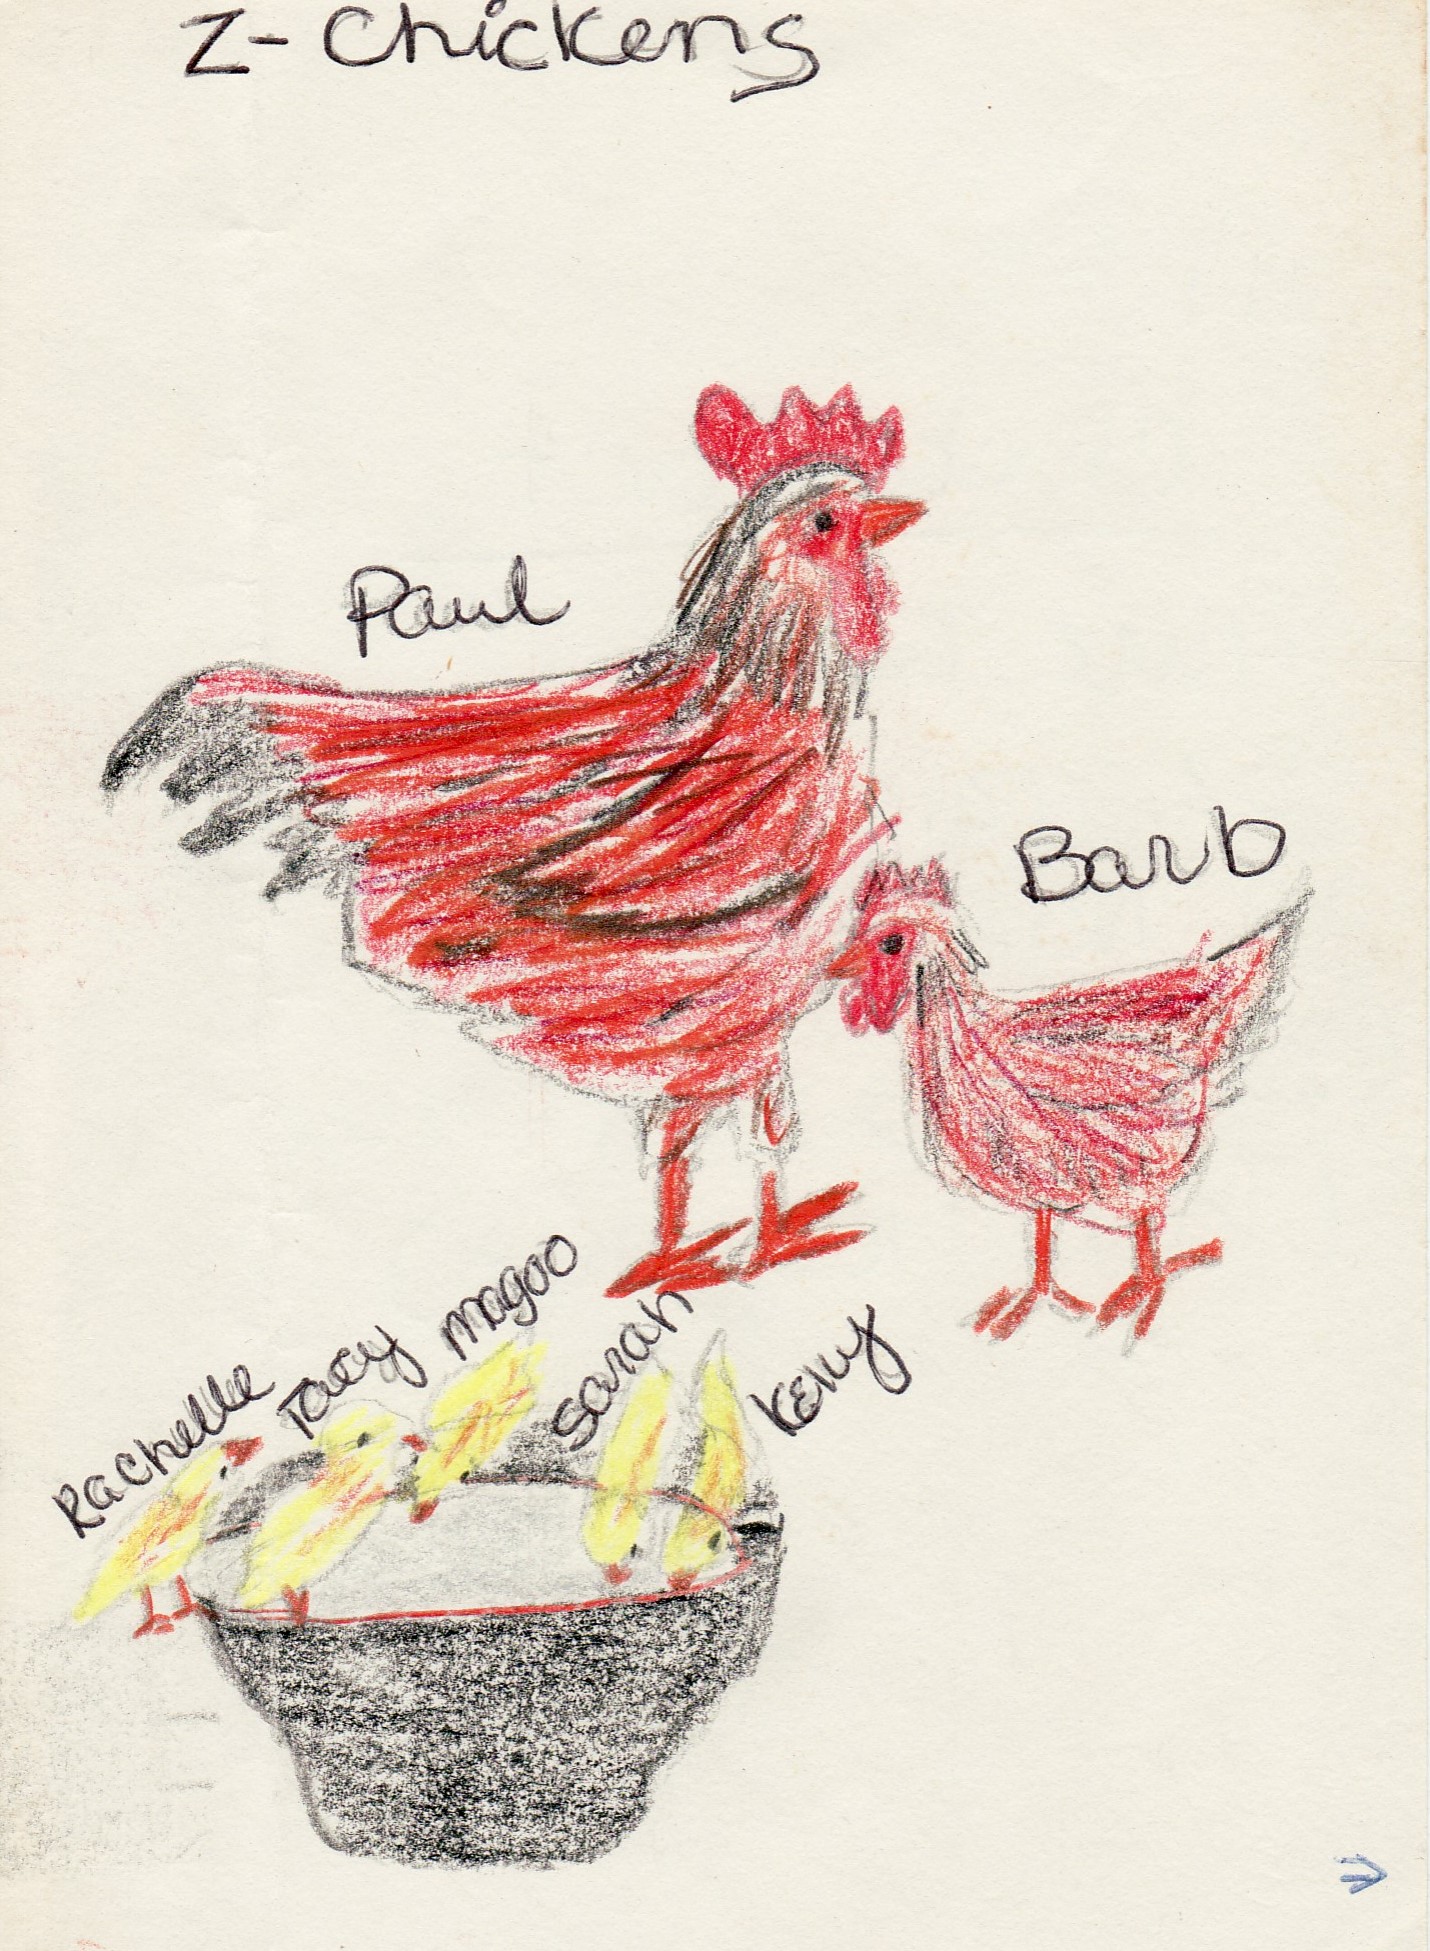 Z- Chickens
Paul
Barb
Rachelle
Tacey
magoo
Sarah
Kenny